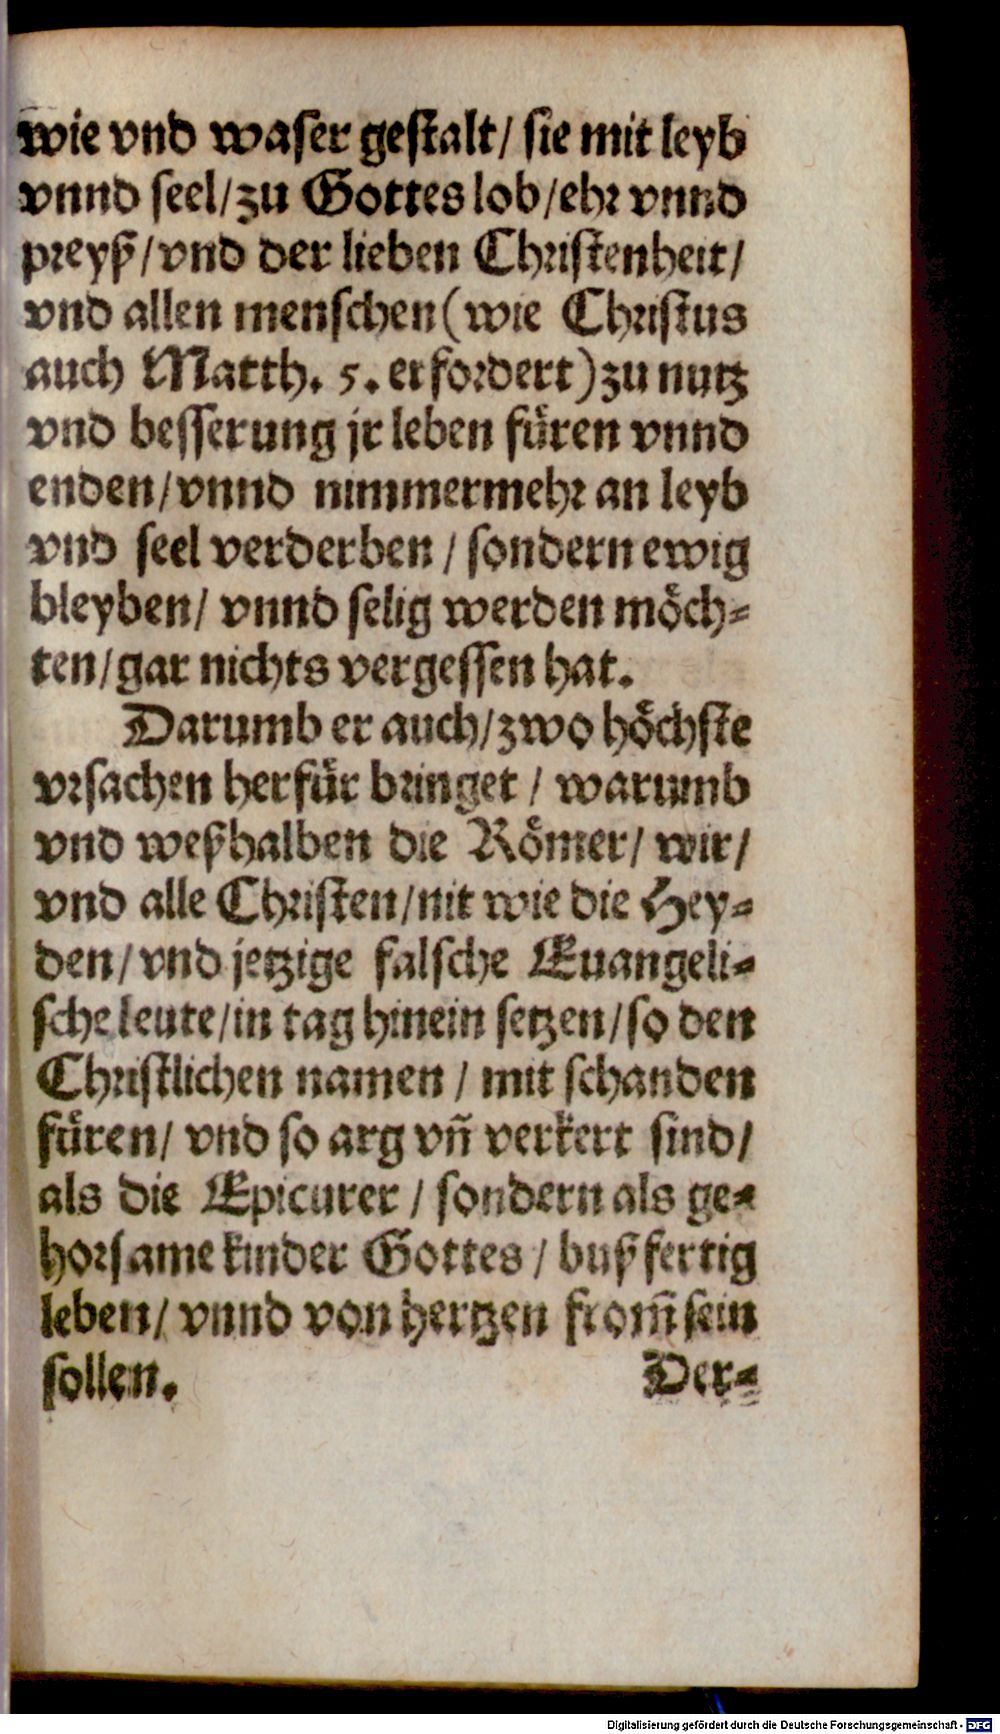 wie vnd waser gestalt/ sie mit leyb
vnnd seel/zu Gottes lob/ehr vnnd
preyß/vnd der lieben Christenheit/
vnd allen menschen(wie Christus
auch Matth. 5. erfordert)zu nutz
vnd besserung jr leben füren vnnd
enden/vnnd nimmermehr an leyb
vnd seel verderben/sondern ewig
bleyben/ vnnd selig werden möch-
ten/gar nichts vergessen hat.
Darumb er auch/zwo höchste
vrsachen herfür bringet/ warumb
vnd weßhalben die Römer/ wir/
vnd alle Christen/nit wie die Hey-
den/vnd jetzige falsche Euangeli-
sche leute/in tag hinein setzen/so den
Christlichen namen/ mit schanden
füren/ vnd so arg vñ verkert sind/
als die Epicurer/ sondern als ge-
horsame kinder Gottes/ bußfertig
leben/ vnnd von hertzen from̃ sein
sollen. Der-
Digitalisierung gefördert durch die Deutsche Forschungsgemeinschaft - DFG